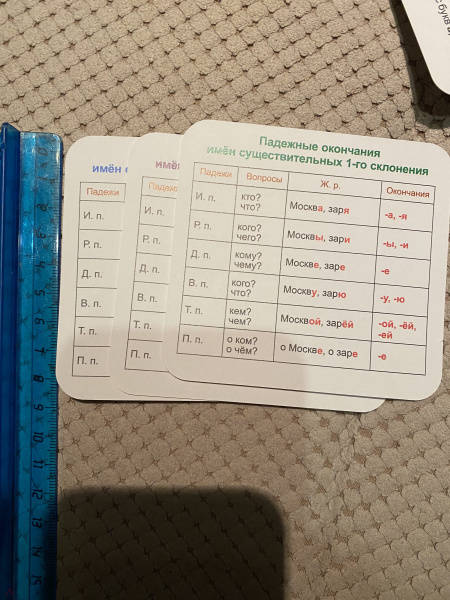 Падежные окончания
имён существительных 1-го склонения
Падежи Вопросы Ж. р. Окончания
И. п. кто? что? Москва, заря -а, -я
Р. п. кого? чего? Москвы, зари -ы, -и
Д. п. кому? чему? Москве, заре -е
В. п. кого? что? Москву, зарю -у, -ю
Т. п. кем? чем? Москвой, зарёй -ой, -ёй, -ей
П. п. о ком? о чём? о Москве, о заре -е
имён
Падежи
И. п.
Р. п.
Д. п.
В. п.
Т. п.
П. п.
имё
Падежи
И. п.
Р. п.
Д. п.
В. п.
Т. п.
П. п.
5
6
7
8
9
10
11
12
13
14
15
букв